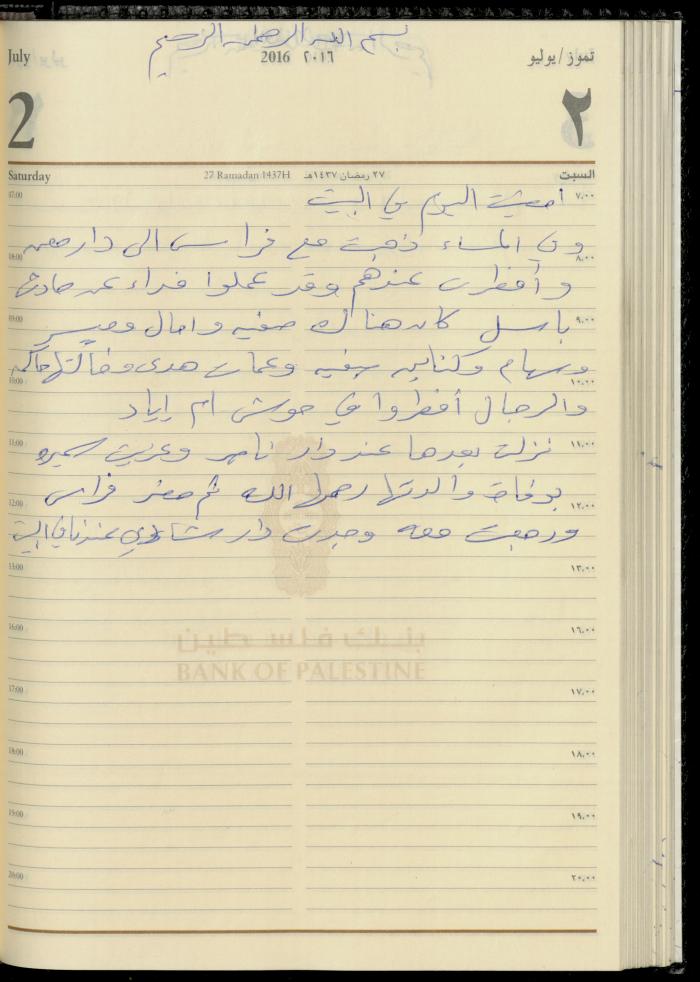 بسم الله الرحمن الرحيم
July 2016 ٢٠١٦ تموز/يوليو
2 ٢
Saturday 27 Ramadan 1437H ٢٧ رمضان ١٤٣٧هـ السبت
07:00 أمضيت اليوم في البيت ٧,٠٠
وفي المساء ذهبت مع فراس الى دار
08:00 ٨,٠٠
وأفطرت عندهم وقد عملوا غداء عن
09:00 باسل كان هناك صفيه وامال ٩,٠٠
وسهام وهدى وخالتها
10:00 ١٠,٠٠
والرجال أفطروا في حوش ام اياد
11:00 نزلت بعدها عند دار ناصر وعزيت سميره ١١,٠٠
بوفاة والدتها رحمها الله ثم حضر فراس
12:00 ١٢,٠٠
ورجعت معه وجدت دار عندنا في البيت
13:00 ١٣,٠٠
16:00 ١٦,٠٠
بنك فلسطين
BANK OF PALESTINE
17:00 ١٧,٠٠
18:00 ١٨,٠٠
19:00 ١٩,٠٠
20:00 ٢٠,٠٠